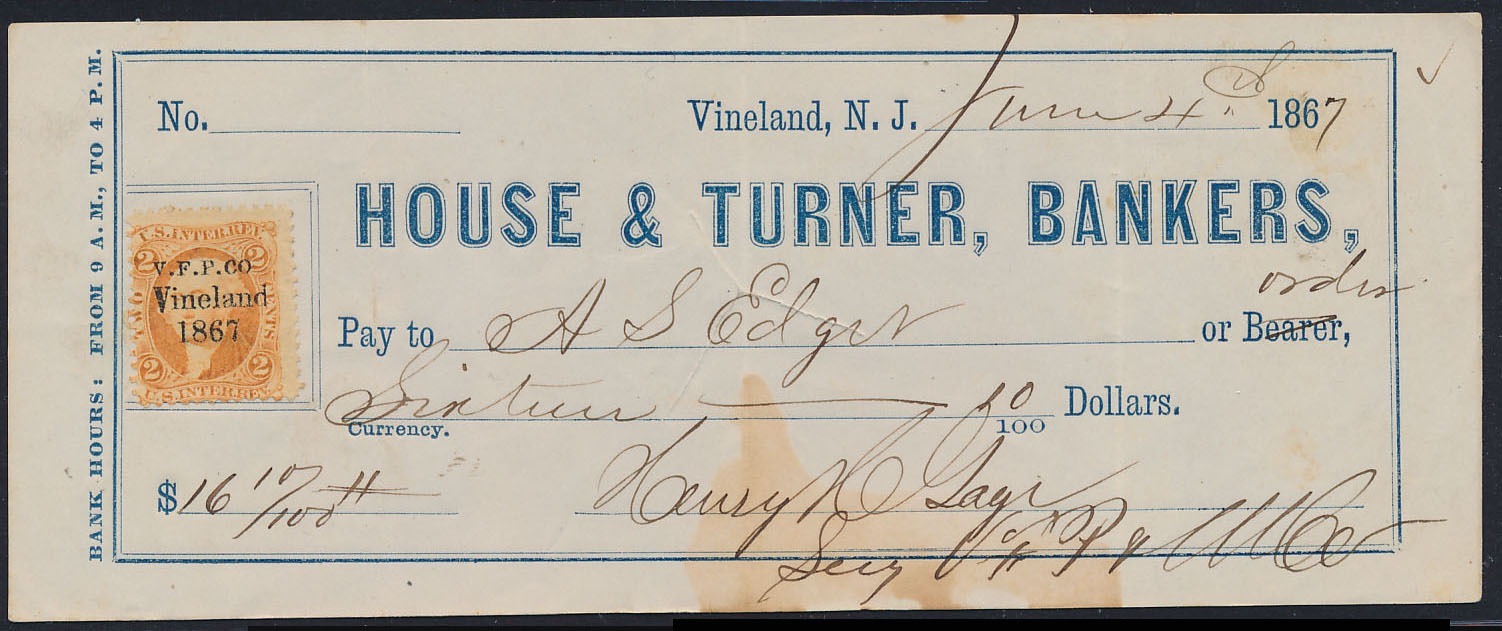 BANK HOURS: FROM 9 A. M., TO 4 P. M.
No.
Vineland, N. J. June 4th 1867
HOUSE & TURNER, BANKERS,
U.S. INTER. REV.
2 2
TWO CENTS
V. F. P. CO
Vineland
1867
2 2
U.S. INTER. REV.
order
Pay to A S Edgar or Bearer,
Sixteen 10/100 Dollars.
Currency.
$16 10/100
Henry
Secy